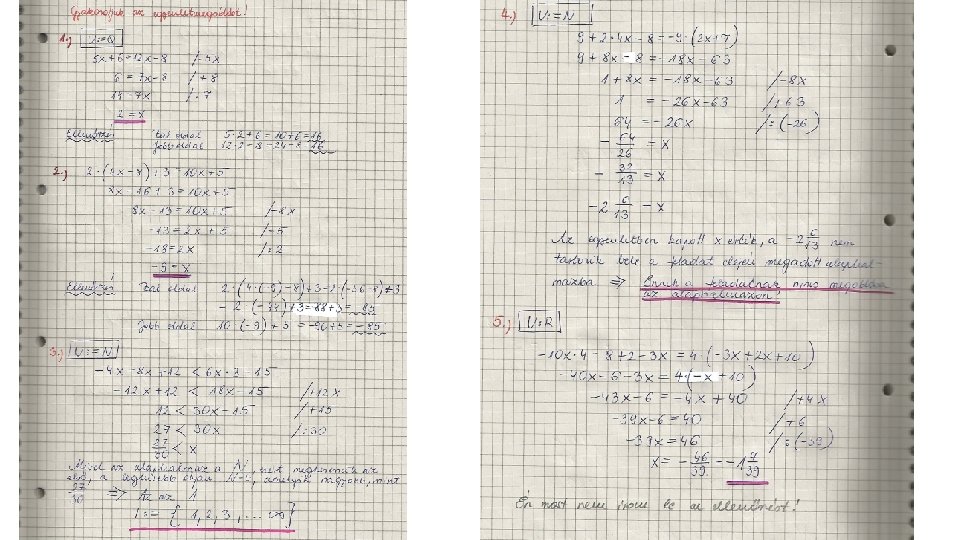 Gyakoroljuk az egyenletmegoldást!
1.) U:=Q
5x+6=12x-8 /-5x
6=7x-8 /+8
14=7x /:7
2=x
Ellenőrzés Bal oldal 5·2+6=10+6=16
Jobb oldal 12·2-8=24-8=16
2.) 2·(4x-8)+3=10x+5
8x-16+3=10x+5
8x-13=10x+5 /-8x
-13=2x+5 /-5
-18=2x /:2
-9=x
Ellenőrzés Bal oldal 2·(4·(-9)-8)+3=2·(-36-8)+3
=2·(-44)+3=-88+3=-85
Jobb oldal 10·(-9)+5=-90+5=-85
3.) U:=N
-4x-8x+12<6x·3-15
-12x+12<18x-15 /+12x
12<30x-15 /+15
27<30x /:30
27/30<x
Mivel az alaphalmaz a N, ezért
a legkisebb olyan amelyik nagyobb, mint
27/30 => Az az 1
I:={1,2,3,...∞}
4.) U:=N
9+2·4x-8=-9·(2x+7)
9+8x-8=-18x-63
1+8x=-18x-63 /-8x
1=-26x-63 /+63
64=-26x /:(-26)
-64/26=x
-32/13=x
-2 6/13=x
Az egyenletben kapott x érték, a -2 6/13 nem
tartozik bele a feladat elején megadott alaphal-
mazba => Ennek a feladatnak nincs megoldása
az alaphalmazon!
5.) U:R
-10x·4-8+2-3x=4·(-3x+2x+10)
-40x-6-3x=4(-x+10)
-43x-6=-4x+40 /+4x
-39x-6=40 /+6
-39x=46 /:(-39)
x=-46/39=-1 7/39
Én most nem írom le az ellenőrzést!